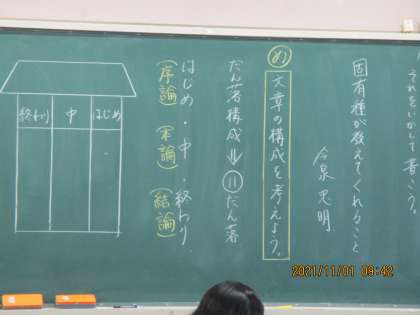 それをいかして書こう。
固有種が教えてくれること
今泉忠明
め
文章の構成を考えよう。
だん落構成⇒⑪だん落
はじめ・中・終わり
(序論) (本論) (結論)
はじめ
中
終わり
2021/11/01 09:42